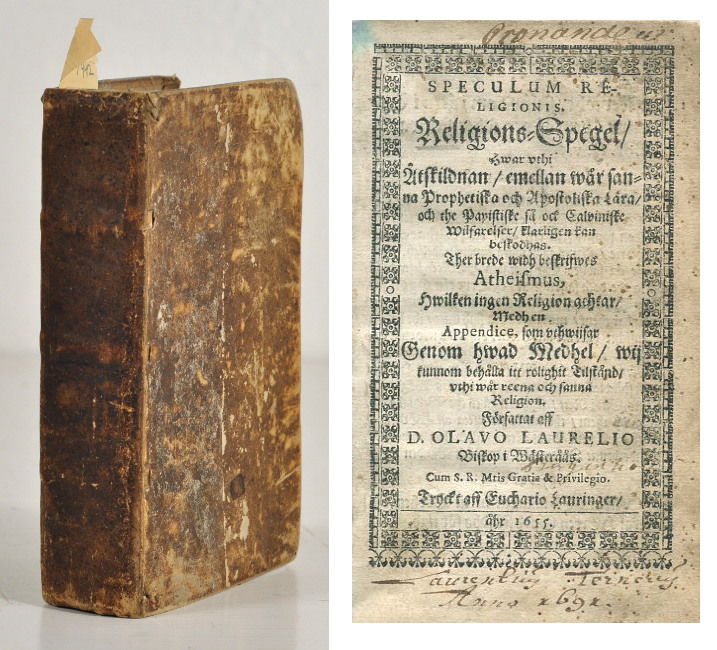 1492
SPECULUM RE-
LIGIONIS.
Religions-Spegel/
Hwar vthi
Åtskildnan / emellan wår san-
na Prophetiska och Apostoliska Lära/
och the Papistiske så ock Calviniske
Wilfarelser/ klarligen kan
beskodhas.
Ther brede widh beskrifwes
Atheismus,
Hwilken ingen Religion achtar/
Medh en
Appendice, som vthwijsar
Genom hwad Medhel / wij
kunnom behålla itt rolighit Tilstånd/
vthi wår reena och sanna
Religion.
Författat aff
D. OLAVO LAURELIO
Biskop i Wästeråås.
Cum S. R. Mtis Gratia & Privilegio.
Tryckt aff Euchario Lauringer/
åhr 1655.
Laurentius
Anno 1691.